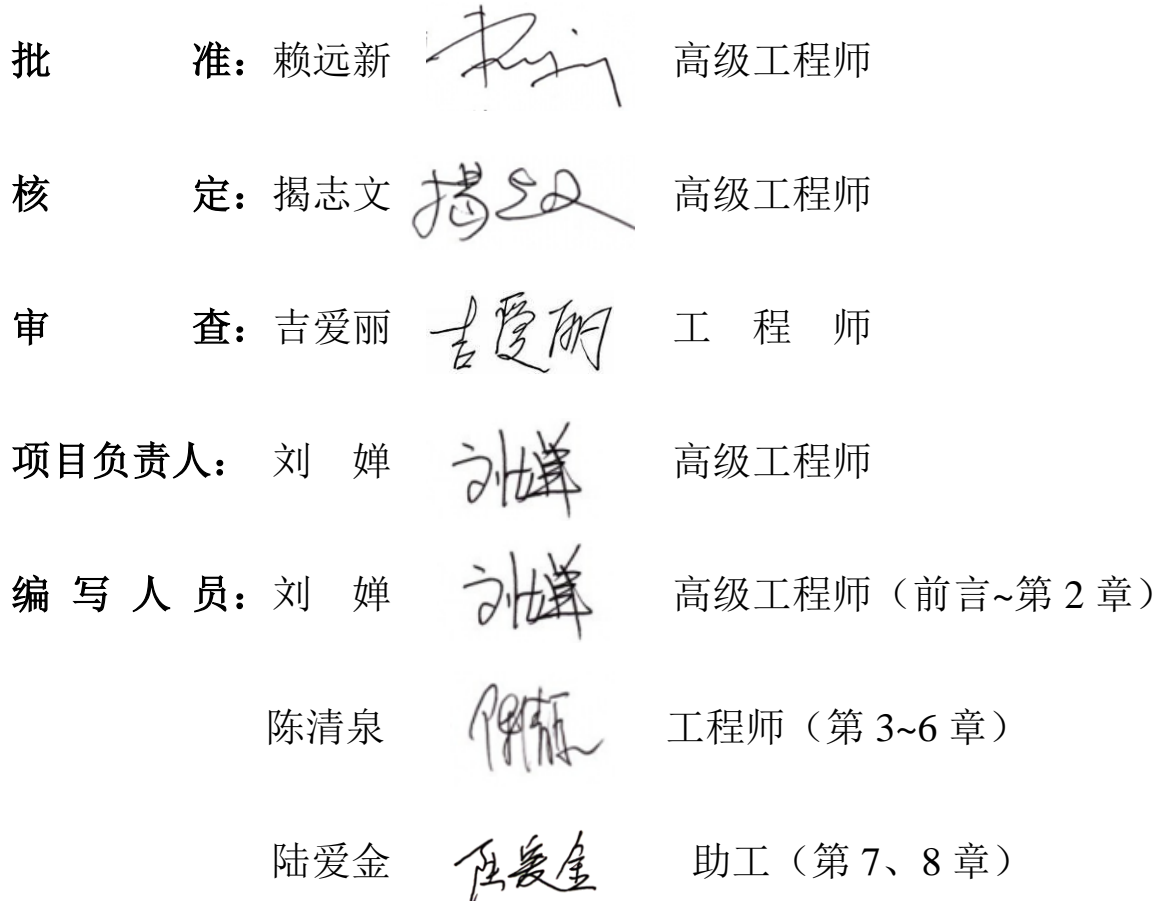 批 准：赖远新 高级工程师
核 定：揭志文 揭志文 高级工程师
审 查：吉爱丽 吉爱丽 工 程 师
项目负责人： 刘 婵 刘婵 高级工程师
编 写 人 员：刘 婵 刘婵 高级工程师（前言~第 2 章）
陈清泉 陈清泉 工程师（第 3~6 章）
陆爱金 陆爱金 助工（第 7、8 章）